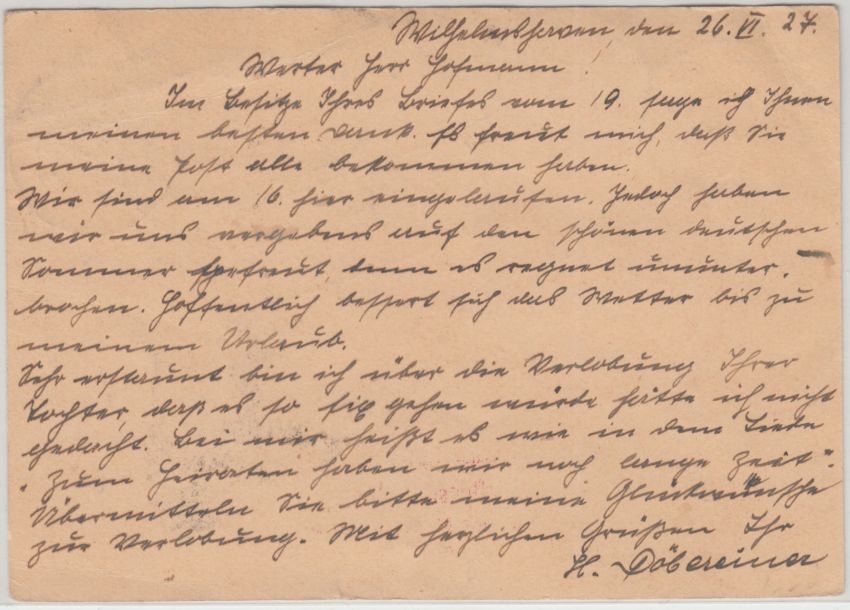 Wilhelmshaven, den 26. VI. 27.
Werter Herr Hofmann!
Im Besitze Ihres Briefes vom 19. sage ich Ihnen
meinen besten Dank. Es freut mich, daß Sie
meine Post alle bekommen haben.
Wir sind am 16. hier eingelaufen. Jedoch haben
wir uns vergebens auf den schönen deutschen
Sommer gefreut, denn es regnet ununter-
brochen. Hoffentlich bessert sich das Wetter bis zu
meinem Urlaub.
Sehr erstaunt bin ich über die Verlobung Ihrer
Tochter, daß es so fix gehen würde hätte ich nicht
gedacht. Bei mir heißt es wie in dem Liede
"Zum Heiraten haben wir noch lange Zeit".
Übermitteln Sie bitte meine Glückwünsche
zur Verlobung. Mit herzlichen Grüßen Ihr
H. Döbereiner